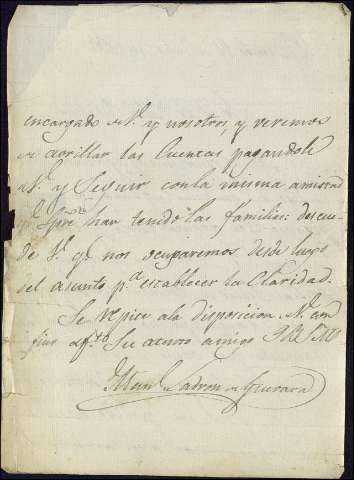 encargado de V. y nosotros, y veremos
de aorillar las Cuentas pagandole
a V. y Seguir conla misma amistad
q.e spre han tenido las familias: descui-
de V. q.e nos ocuparemos desde luego
del asunto p.a establecer la Claridad.
Se repite ala disposicion de V. con
fino af.to Su atento amigo Q B S M
Man.l Ladron de Guevara